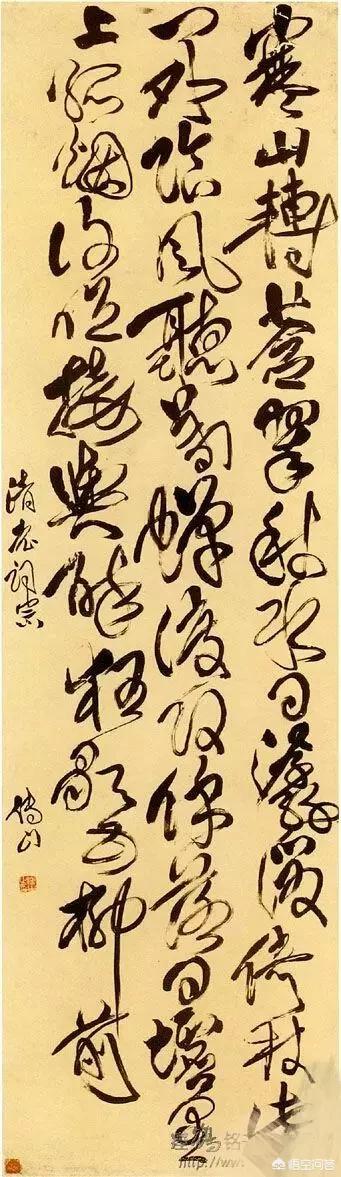 寒山轉蒼翠秋水日潺湲倚杖柴
門外臨風聽暮蟬渡頭餘落日墟里
上孤烟復值接輿醉狂歌五柳前
老詞宗
傅山
http://www.
悟空问答